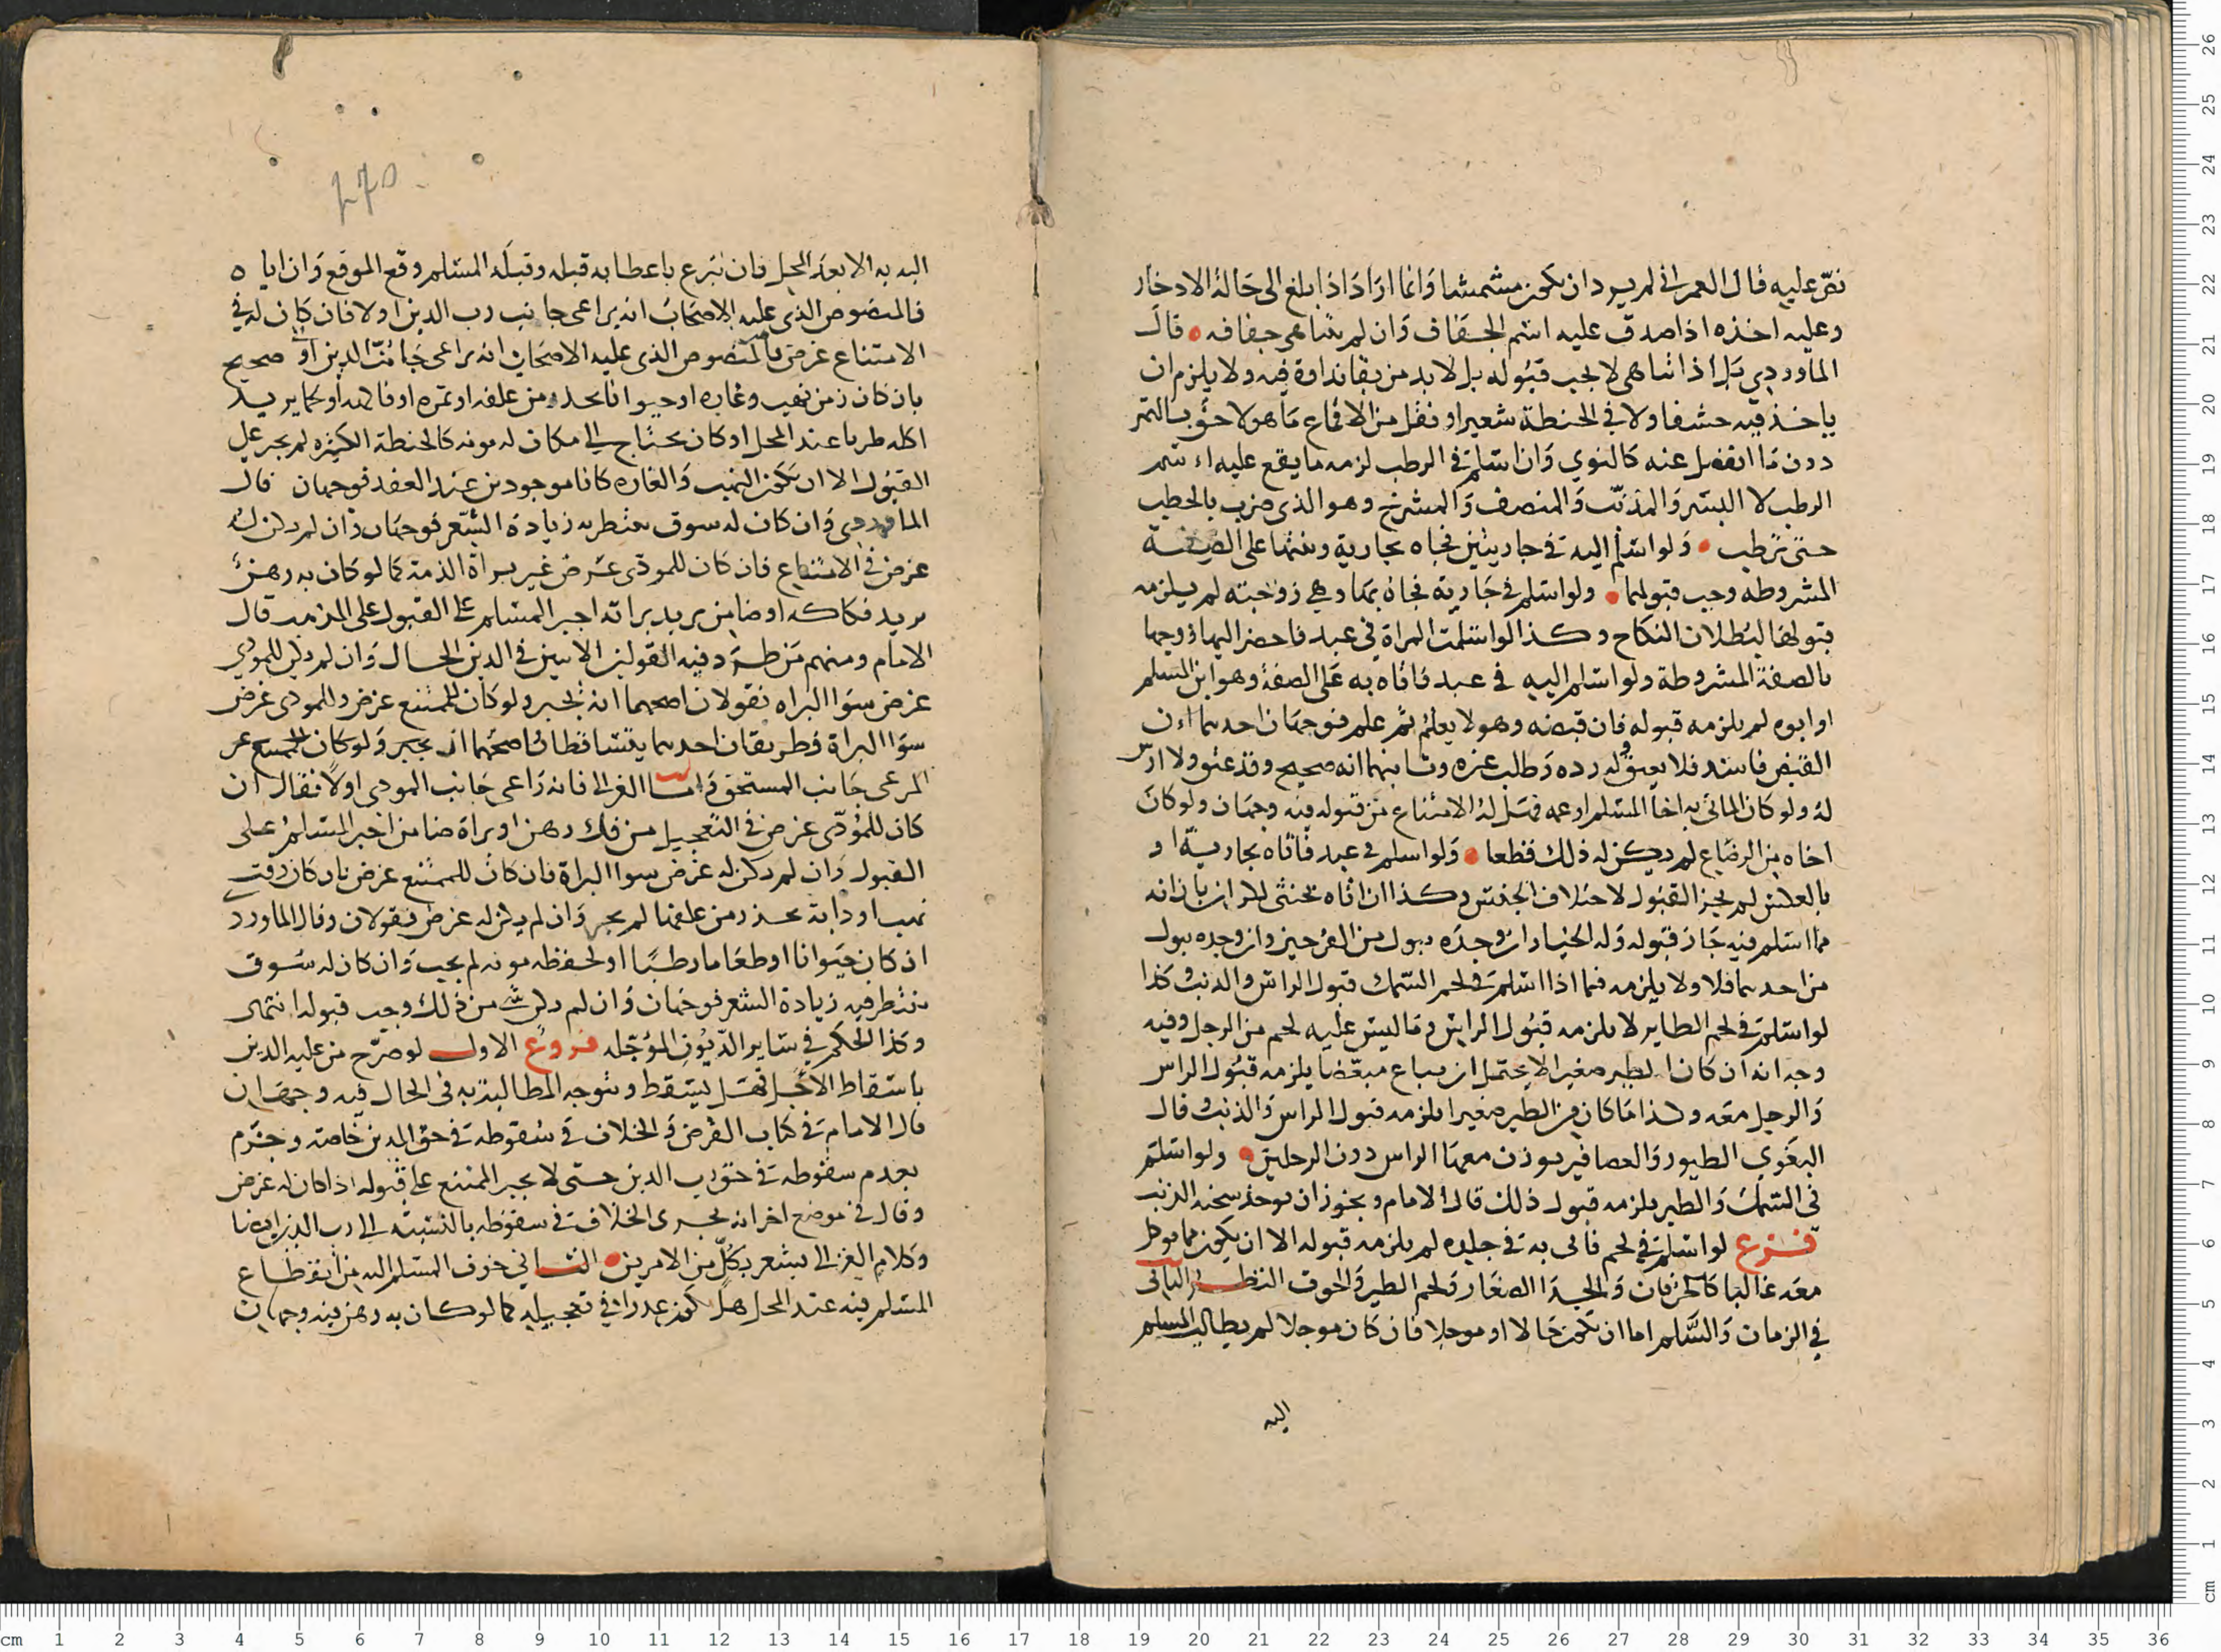 نصّ عليه قال العمراني لم يرد ان يكون مشمشا وانما اراد اذا بلغ الى حالة الادخار
وعليه اخذه اذا صدق عليه اسم الجفاف وان لم يتناهى جفافه قال
الماوردي بل اذا تناهى لا يجب قبوله بل لا بد من بقا نداوة فيه ولا يلزم ان
ياخذ فيه حشفا ولا في الحنطة شعيرا ونقل من الاقماع ما هو لاحق بالتمر
دون ما انفصل عنه كالنوي وان اسلم في الرطب لزمه ما يقع عليه اسم
الرطب لا البسر والمذنب والمنصف والمشدخ وهو الذي ضرب بالخطب
حتى ترطب ولو اسلم اليه في جاريتين فجاه بجارية وبنتها على الصفة
المشروطة وجب قبولهما ولو اسلم في جارية فجاه بها وهي زوجته لم يلزمه
قبولها لبطلان النكاح وكذا لو اسلمت المراة في عبد فاحضر اليها زوجها
بالصفة المشروطة ولو اسلم اليه في عبد فاتاه به على الصفة وهو ابن المسلم
او ابوه لم يلزمه قبوله فان قبضه وهو لا يعلم ثم علم فوجهان احدهما ان
القبض فاسد فلا يعتق وله رده وطلب غيره وثانيهما انه صحيح وقد عتق ولا ارش
له ولو كان الماتي به اخا المسلم او عمه فهل له الامتناع من قبوله فيه وجهان ولو كان
اخاه من الرضاع لم يكن له ذلك قطعا ولو اسلم في عبد فاتاه بجارية او
بالعكس لم يجز القبول لاختلاف الجنس وكذا ان اتاه بخنثى بان انه
مما اسلم فيه جاز قبوله وله الخيار ان وجده يبول من الفرجين وان وجده يبول
من احدهما فلا ولا يلزمه فيما اذا اسلم في لحم السمك قبول الراس والذنب وكذا
لو اسلم في لحم الطاير لا يلزمه قبول الراس وما ليس عليه لحم من الرجل وفيه
وجه انه ان كان الطير صغيرا لا يحتمل ان يباع مبعضا يلزمه قبول الراس
والرجل معه وكذا ما كان من الطير صغيرا يلزمه قبول الراس والذنب وقال
البغوي الطيور والعصافير يوزن معها الراس دون الرجلين ولو اسلم
في السمك والطير يلزمه قبول ذلك قال الامام ويجوز ان يوخذ الذنب
فرع لو اسلم في لحم فاتى به في جلده لم يلزمه قبوله الا ان يكون مما يوكل
معه غالبا كالخرفان والجدا الصغار ولحم الطير والحوت النظر الثاني
في الزمان والسلم اما ان يكون حالا او موجلا فان كان موجلا لم يطالب المسلم
اليه
٢٧٥
اليه به الا بعد المحل فان تبرع باعطايه قبله وقبله المسلم وقع الموقع وان اباه
فالمنصوص الذي عليه الاصحاب انه يراعى جانب رب الدين اولا فان كان له في
الامتناع غرض فالمنصوص الذي عليه الاصحاب انه يراعى جانب الدين صحيح
بان كان زمن نهب وغارة او حيوانا يحذر من علفه او ثمره او فاكهة او لحما يريد
اكله طريا عند المحل او كان يحتاج الى مكان له مونه كالحنطة الكثيره لم يجبر على
القبول الا ان يكون النهب والغاره كانا موجودين عند العقد فوجهان قال
الماوردي وان كان له سوق ينتظر به زيادة السعر فوجهان وان لم يكن له
غرض في الامتناع فان كان للمودي غرض غير براة الذمة كما لو كان به رهن
يريد فكاكه او ضامن يريد براته اجبر المسلم على القبول على المذهب قال
الامام ومنهم من طرد فيه القولين الاتيين في الدين الحال وان لم يكن للمودي
غرض سوا البراه فقولان اصحهما انه يجبر ولو كان للممتنع غرض وللمودي غرض
سوا البراة فطريقان احدهما يتساقطان اصحهما انه يجبر ولو كان للممتنع
المرعى جانب المستحق واما الغزالي فانه راعى جانب المودي اولا فقال ان
كان للمؤدي غرض في التعجيل من فك رهن او براة ضامن اجبر المسلم على
القبول وان لم يكن له غرض سوا البراة فان كان للممتنع غرض بان كان وقت
نهب او دابة يحذر من علفها لم يجبر وان لم يكن له غرض فقولان وقال الماوردي
ان كان حيوانا او طعاما رطبا او لحفظه مونه لم يجب وان كان له سوق
ينتظر فيه زيادة السعر فوجهان وان لم يكن شي من ذلك وجب قبوله انتهى
وكذا الحكم في ساير الديون المؤجله فروع الاول لو صرح من عليه الدين
باسقاط الاجل فهل يسقط ويتوجه المطالبة به في الحال فيه وجهان
قال الامام في كتاب القرض والخلاف في سقوطه في حق المدين خاصه وجزم
بعدم سقوطه في حق رب الدين حتى لا يجبر الممتنع على قبوله اذا كان له غرض
وقال في موضع اخر انه يجري الخلاف في سقوطه بالنسبه الى رب الدين ايضا
وكلام الغزالي يشعر بكل من الامرين الثاني خوف المسلم اليه من انقطاع
المسلم فيه عند المحل هل يكون عذرا في تعجيله كما لو كان به رهن فيه وجهان